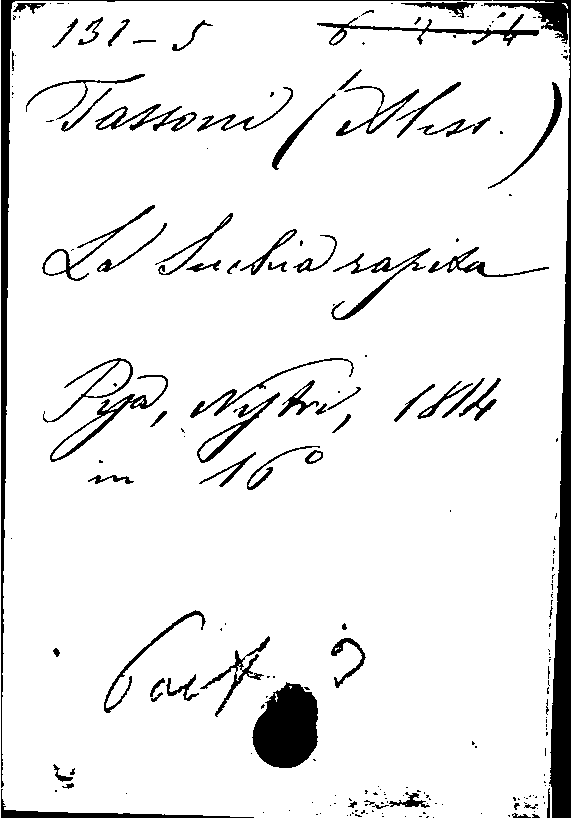 131-5 6. 4. 54
Tassoni (Aless.)
La Secchia rapita
Pisa, Nistri, 1814
in 16°